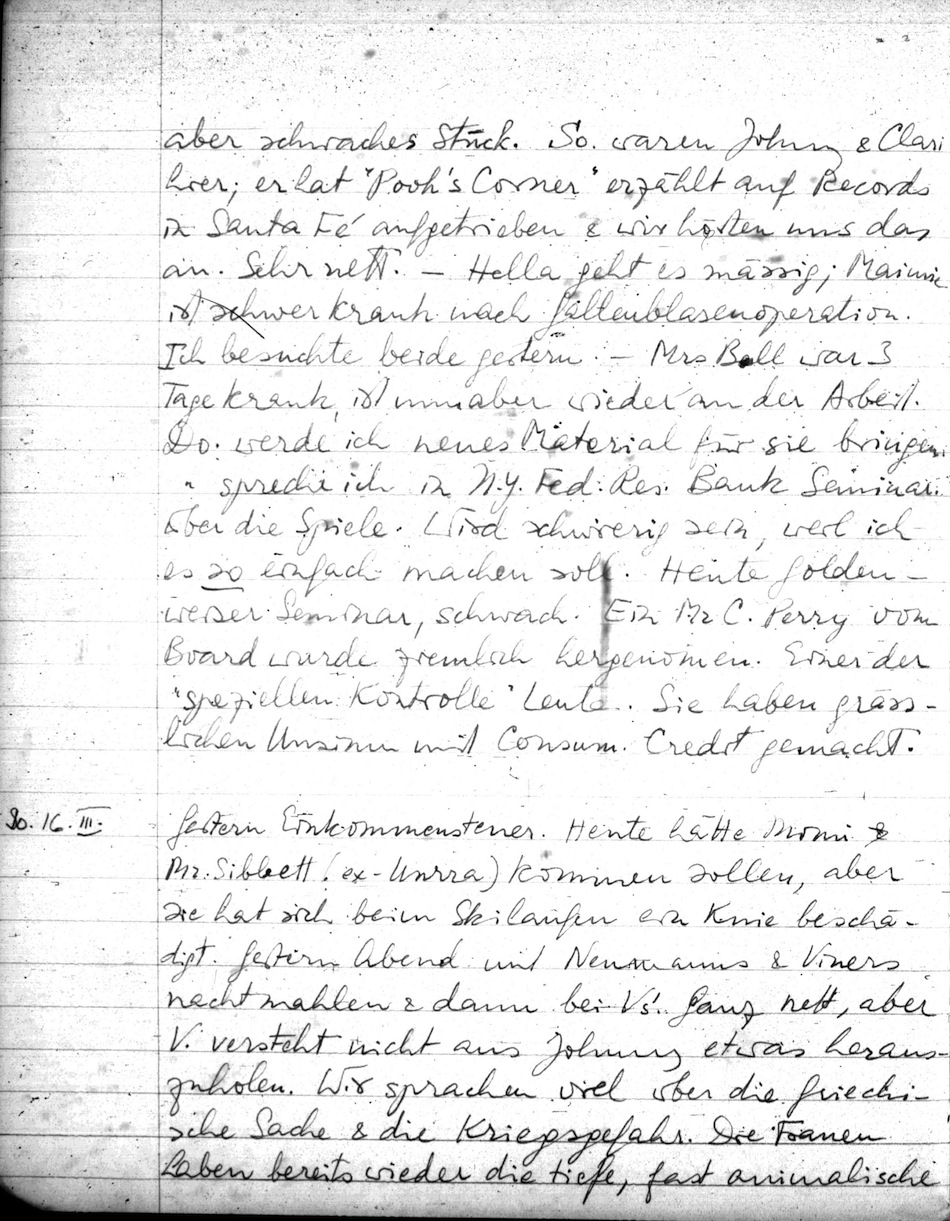 aber schwaches Stück. So. waren Johnny & Clari
hier; er hat "Pooh's Corner" erzählt auf Records
in Santa Fé aufgetrieben & wir hörten uns das
an. Sehr nett. – Hella geht es mässig; Maimie
ist schwer krank nach Gallenblasenoperation.
Ich besuchte beide gestern. – Mrs Bell war 3
Tage krank, ist nun aber wieder an der Arbeit.
Do. werde ich neues Material für sie bringen.
" spreche ich in N.Y. Fed. Res. Bank Seminar
über die Spiele. Wird schwierig sein, weil ich
es so einfach machen soll. Heute Golden-
weiser Seminar, schwach. Ein Mr C. Perry vom
Board wurde ziemlich hergenommen. Einer der
"speziellen Kontrolle" Leute. Sie haben gräss-
lichen Unsinn mit Consum. Credit gemacht.
So. 16. III.
Gestern Einkommensteuer. Heute hätte Mimi &
Mr. Sibbett (ex-Unrra) kommen sollen, aber
sie hat sich beim Skilaufen ein Knie beschä-
digt. Gestern Abend mit Neumanns & Viners
nachtmahlen & dann bei V's. Ganz nett, aber
V. versteht nicht aus Johnny etwas heraus-
zuholen. Wir sprachen viel über die griechi-
sche Sache & die Kriegsgefahr. Die Frauen
haben bereits wieder die tiefe, fast animalische